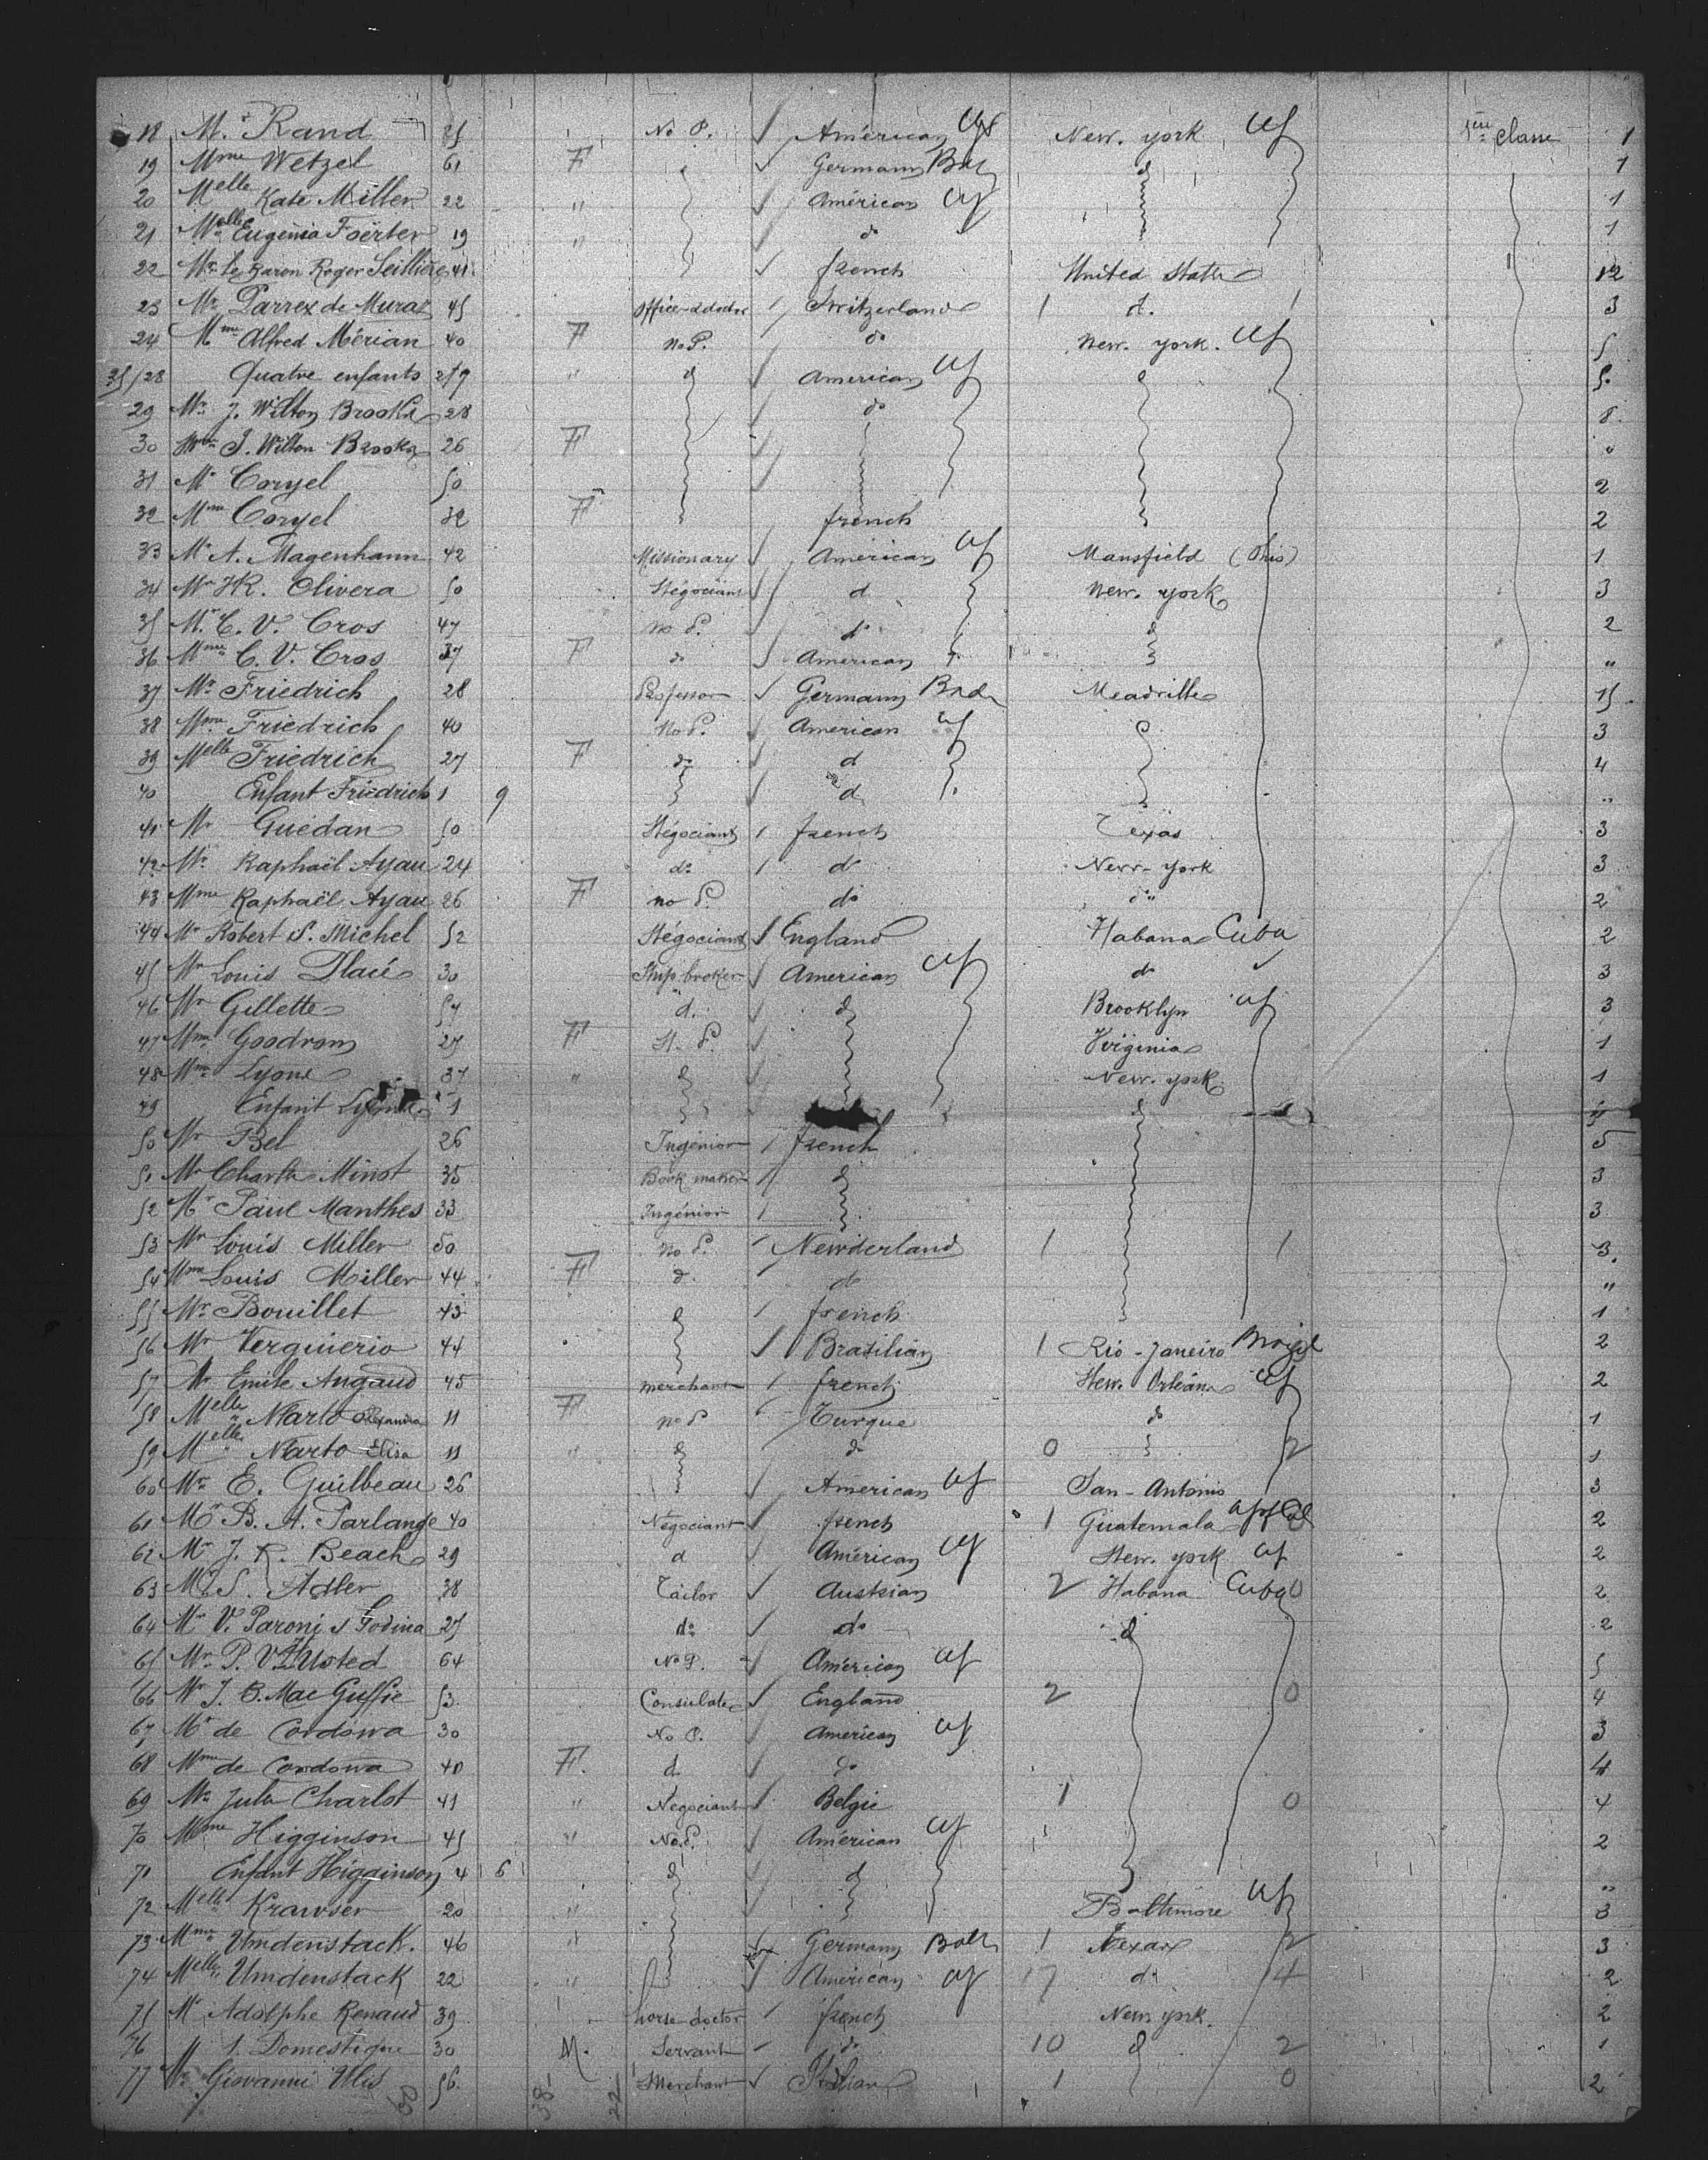 18 Mr Rand 25 No P. American New-york 1ère Classe 1
19 Mme Wetzel 61 F German d 1
20 Melle Kate Miller 22 " American 1
21 Melle Eugénia Foërter 19 " do 1
22 Mr Le Baron Roger Seillière 41 french United States 12
23 Mr Parrex de Muraz 45 Switzerland d. 3
24 Mme Alfred Mérian 40 F no P. do New-york. 5
25/28 Quatre enfants d American
29 Mr J. Wilton Brooks 28 do
30 Mme J. Wilton Brooks 26 F "
31 Mr Coryel 50 2
32 Mme Coryel 32 F french 2
33 Mr A. Magenhann 42 Missionary American Mansfield (Ohio) 1
34 Mr Olivera 50 Négociant d New-york 3
35 Mr C. V. Cros 47 no P. do d 2
36 Mme C. V. Cros 37 F do American "
37 Mr Friedrich 28 Professor German Meadville 15
38 Mme Friedrich 40 No P. American 3
39 Melle Friedrich 27 F do d 4
40 Enfant Friedrich 1 9 d "
41 Mr Guédan 50 Négociant french Texas 3
42 Mr Raphaël Ayau 24 do d New-york 3
43 Mme Raphaël Ayau 26 F no P. do do 2
44 Mr Robert S. Michel 52 Négociant England Habana Cuba 2
45 Mr Louis Placé 30 Ship broker American do 3
46 Mr Gillette 54 d. d Brooklyn 3
47 Mme Goodrom 25 F N. P. Virginia 1
48 Mme Lyone 37 " d New-york 1
49 Enfant 1 d "
50 Mr Bel 26 Ingénior french 5
51 Mr Charles Minot 35 Book maker d 3
52 Mr Paul Manthes 33 Ingénior 3
53 Mr Louis Miller 50 no P. Newderland 1 1 3
54 Mme Louis Miller 44 F d. do "
55 Mr Bouillet 43 d french 1
56 Mr Verguierio 44 Brasilian 1 Rio-Janeiro Brazil 2
57 Mr Emile Angaud 45 merchant french New-Orléans 2
58 Melle Narto Alexandra 11 F no P Turque do 1
59 Melle Narto Elisa 11 " d do 0 2 1
60 Mr E. Guilbeau 26 American San-Antonio 3
61 Mr B. A. Parlange 40 Négociant french 1 Guatemala 2
62 Mr J. R. Beach 29 d American New-york 2
63 Mr S. Adler 38 Tailor Austrian 2 Habana Cuba 0 2
64 Mr V. Paroni 27 do do d 2
65 Mr P. V. 64 No P. American 5
66 Mr J. B. Mac Guffie 53 Consulate England 2 0 4
67 Mr de Cordowa 30 No P. American 3
68 Mme de Cordowa 40 F. d. do 4
69 Mr Jules Charlot 41 " Negociant Belgie 1 0 4
70 Mme Higginson 45 " No P. American 2
71 Enfant Higginson 4 6 d d "
72 Melle Krawser 20 " Baltimore 3
73 Mme Umdenstack. 46 " German 1 Texas 2 3
74 Melle Umdenstack 22 " American 17 do 4 2
75 Mr Adolphe Renaud 39 horse doctor french New york. 2
76 1. Domestique 30 M. Servant do 10 d 2 1
77 Mr Giovanni 56 Merchant Italian 1 0 2